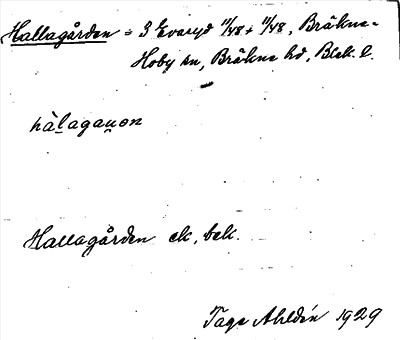 Hallagården = 3 Evaryd 11/48 + 11/48, Bräkne-
Hoby sn, Bräkne hd, Blek. l.
hàlagau̯on
Hallagården ek, bek.
Tage Ahldén 1929